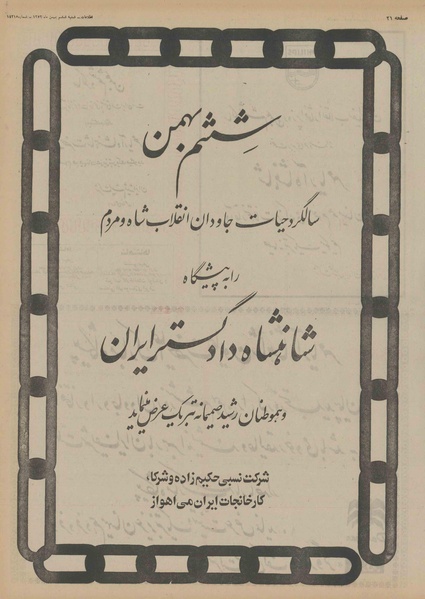 صفحه ۲۱
ششم بهمن
سالگرد حیات جاودان انقلاب شاه و مردم
را به پیشگاه
شاهنشاه دادگستر ایران
و هموطنان رشید صمیمانه تبریک عرض مینماید
شرکت نسبی حکیم زاده و شرکاء
کارخانجات ایران می اهواز